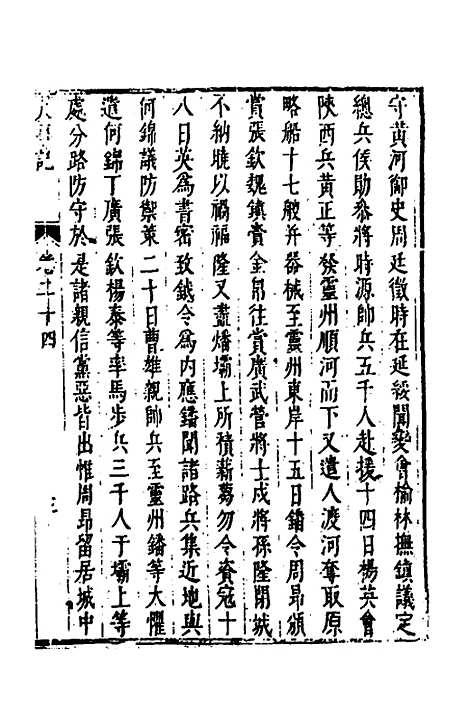 守黃河御史周廷徵時在延綏聞變會榆林撫鎮議定
總兵侯勛叅將時源帥兵五千人赴援十四日楊英會
陝西兵黃正等發靈州順河而下又遣人渡河奪取原
略船十七艘并器械至靈州東岸十五日鐇令周昂頒
賞張欽魏鎮賫金帛往賞廣武營將士戍將孫隆閉城
不納曉以禍福隆又盡燔壩上所積薪蒭勿令資寇十
八日英為書密致鉞令為内應鐇聞諸路兵集近地與
何錦議防禦策二十日曹雄親帥兵至靈州鐇等大懼
遣何錦丁廣張欽楊泰等率馬步兵三千人于壩上等
處分路防守於是諸親信黨惡皆出惟周昂留居城中
記 卷二十四 三